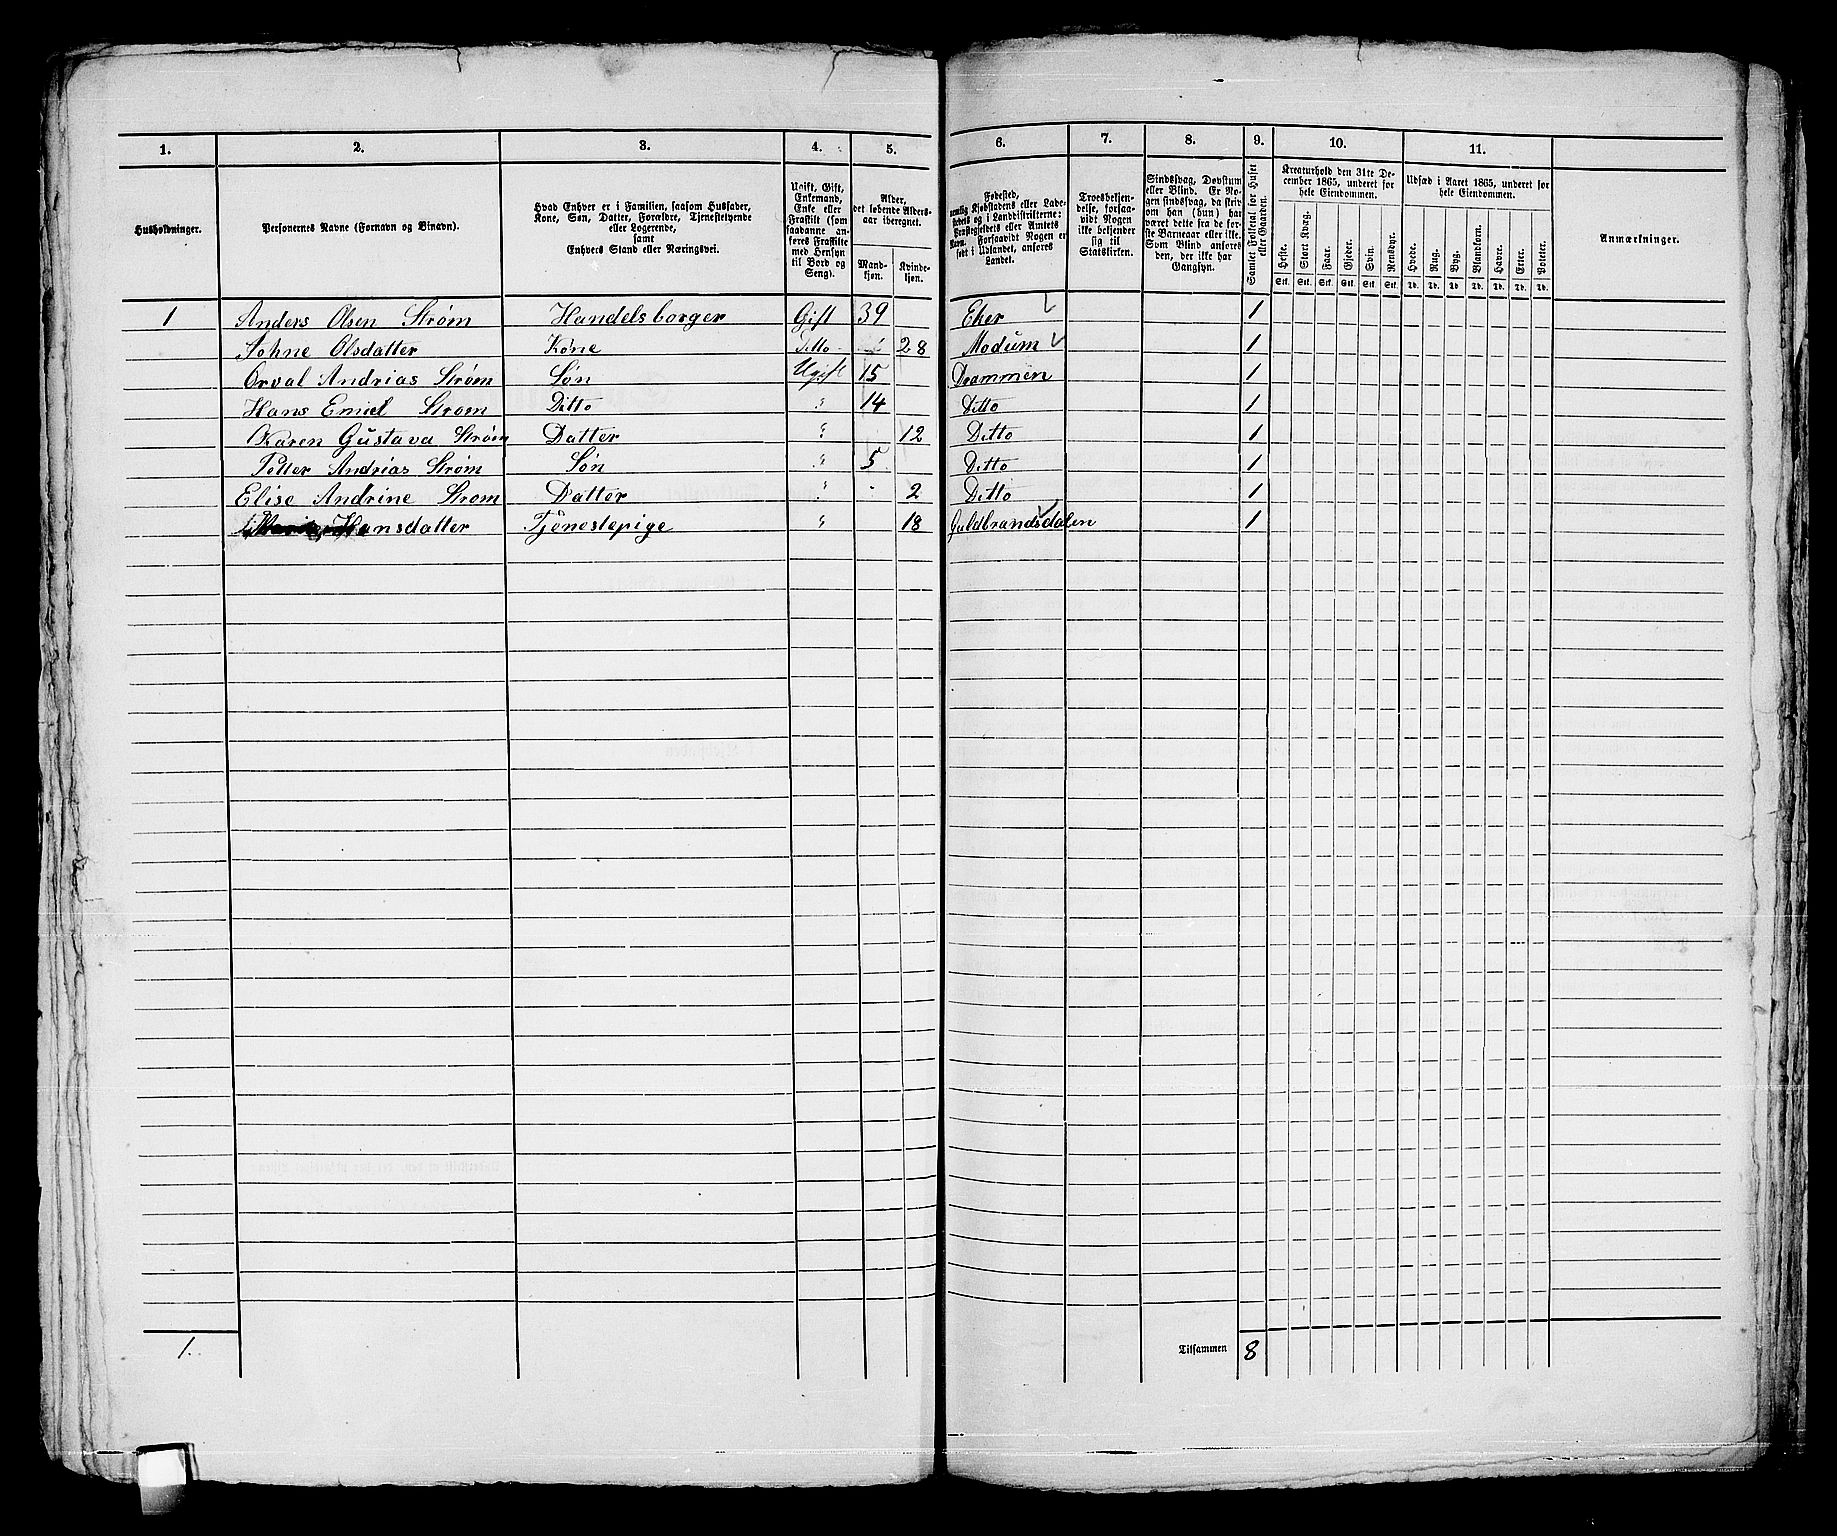 1. 2. 3. 4. 5. 6. 7. 8. 9. 10. 11.
Husholdninger.
Personernes Navne (Fornavn og Binavn).
Hvad Enhver er i Familien, saasom Husfader,
Kone, Søn, Datter, Forældre, Tjenestetyende
eller Logerende,
samt
Enhvers Stand eller Næringsvei.
Ugift, Gift,
Enkemand,
Enke eller
Fraskilt (som
saadanne an-
føres Fraskilte
med Hensyn
til Bord og
Seng).
Alder,
det løbende Alders-
aar iberegnet.
Mand-
kjøn.
Kvinde-
kjøn.
Fødested,
nemlig Kjøbstadens eller Lade-
stedets og i Landdistrikterne:
Præstegjeldets eller Amtets
Navn. Forsaavidt Nogen er
født i Udlandet, anføres
Landet.
Troesbekjen-
delse, forsaa-
vidt Nogen
ikke bekjender
sig til
Statskirken.
Sindssvag, Døvstum
eller Blind. Er No-
gen sindssvag, da skriv
om han (hun) har
været dette fra de før-
ste Barneaar eller ikke.
Som Blind anføres
den, der ikke har
Gangsyn.
Samlet Folketal for Huset
eller Gaarden.
Kreaturhold den 31te De-
cember 1865, underet for
hele Eiendommen.
Heste. Stort Kvæg. Faar. Gjeder. Svin. Rensdyr.
Stk. Stk. Stk. Stk. Stk. Stk.
Udsæd i Aaret 1865, underet for
hele Eiendommen.
Hvede. Rug. Byg. Blandkorn. Havre. Erter. Poteter.
Td. Td. Td. Td. Td. Td. Td.
Anmærkninger.
1 Anders Olsen Strøm Handelsborger Gift 39 Eker 1
Olsdatter Kone Ditto 28 Modum 1
Orval Andrias Strøm Søn Ugift 15 Drammen 1
Hans Emiel Strøm Ditto " 14 Ditto 1
Karen Gustava Strøm Datter " 12 Ditto 1
Petter Andrias Strøm Søn " 5 Ditto 1
Elise Andrine Strøm Datter " 2 Ditto 1
Hansdatter Tjenestepige " 18 Guldbrandsdalen 1
1. Tilsammen 8